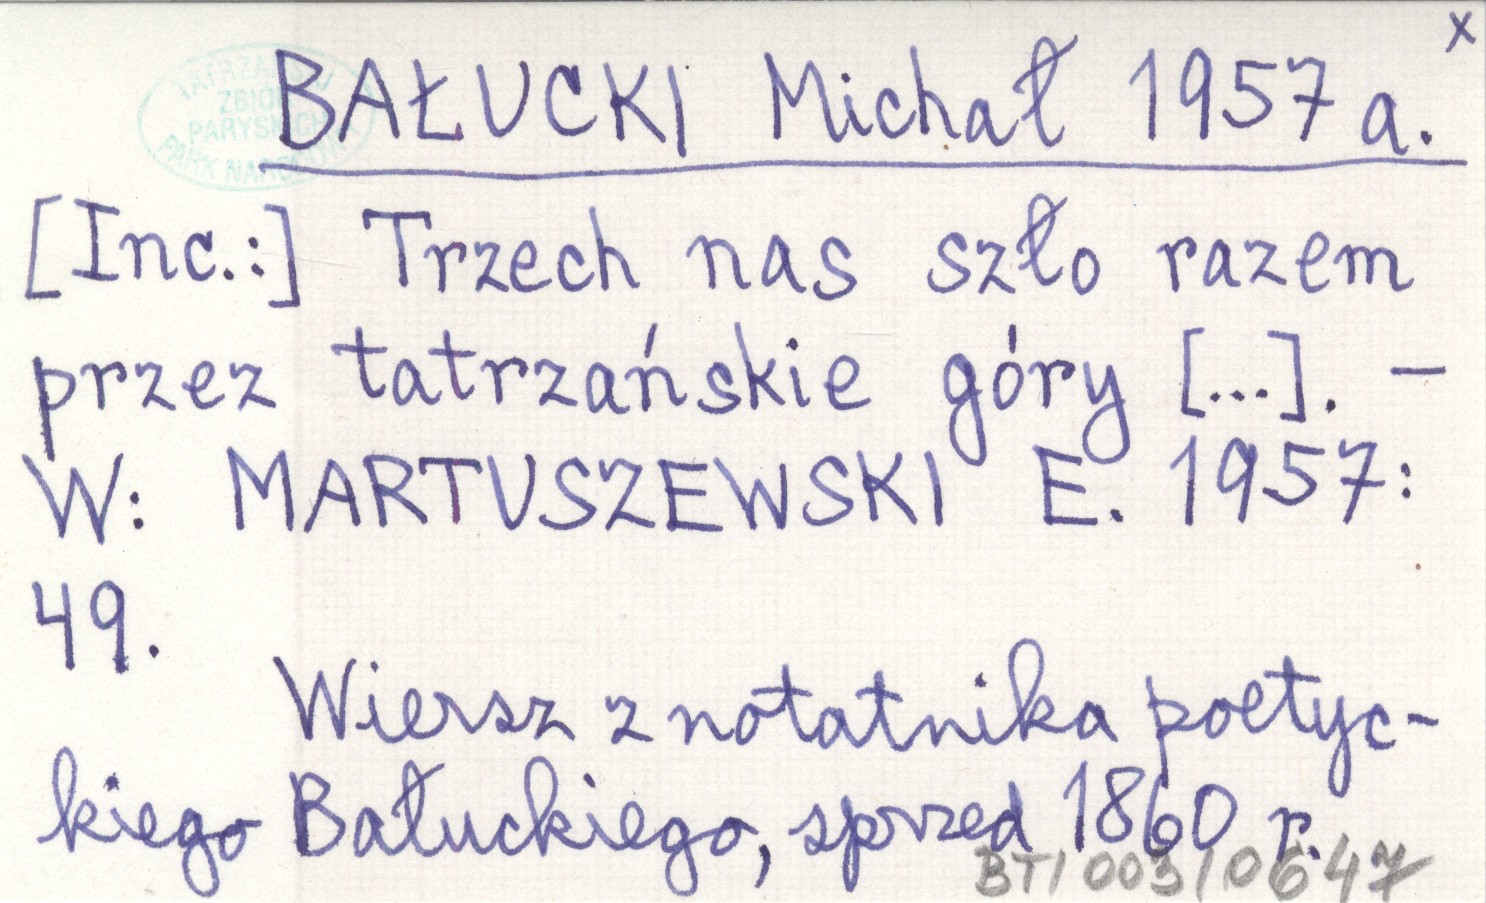 x
BAŁUCKI Michał 1957 a.
[Inc.:] Trzech nas szło razem
przez tatrzańskie góry [...]. –
W: MARTUSZEWSKI E. 1957:
49.
Wiersz z notatnika poetyc-
kiego Bałuckiego, sprzed 1860 r.
BT/003/0647
ZBIO
PARYS
PARK NARO